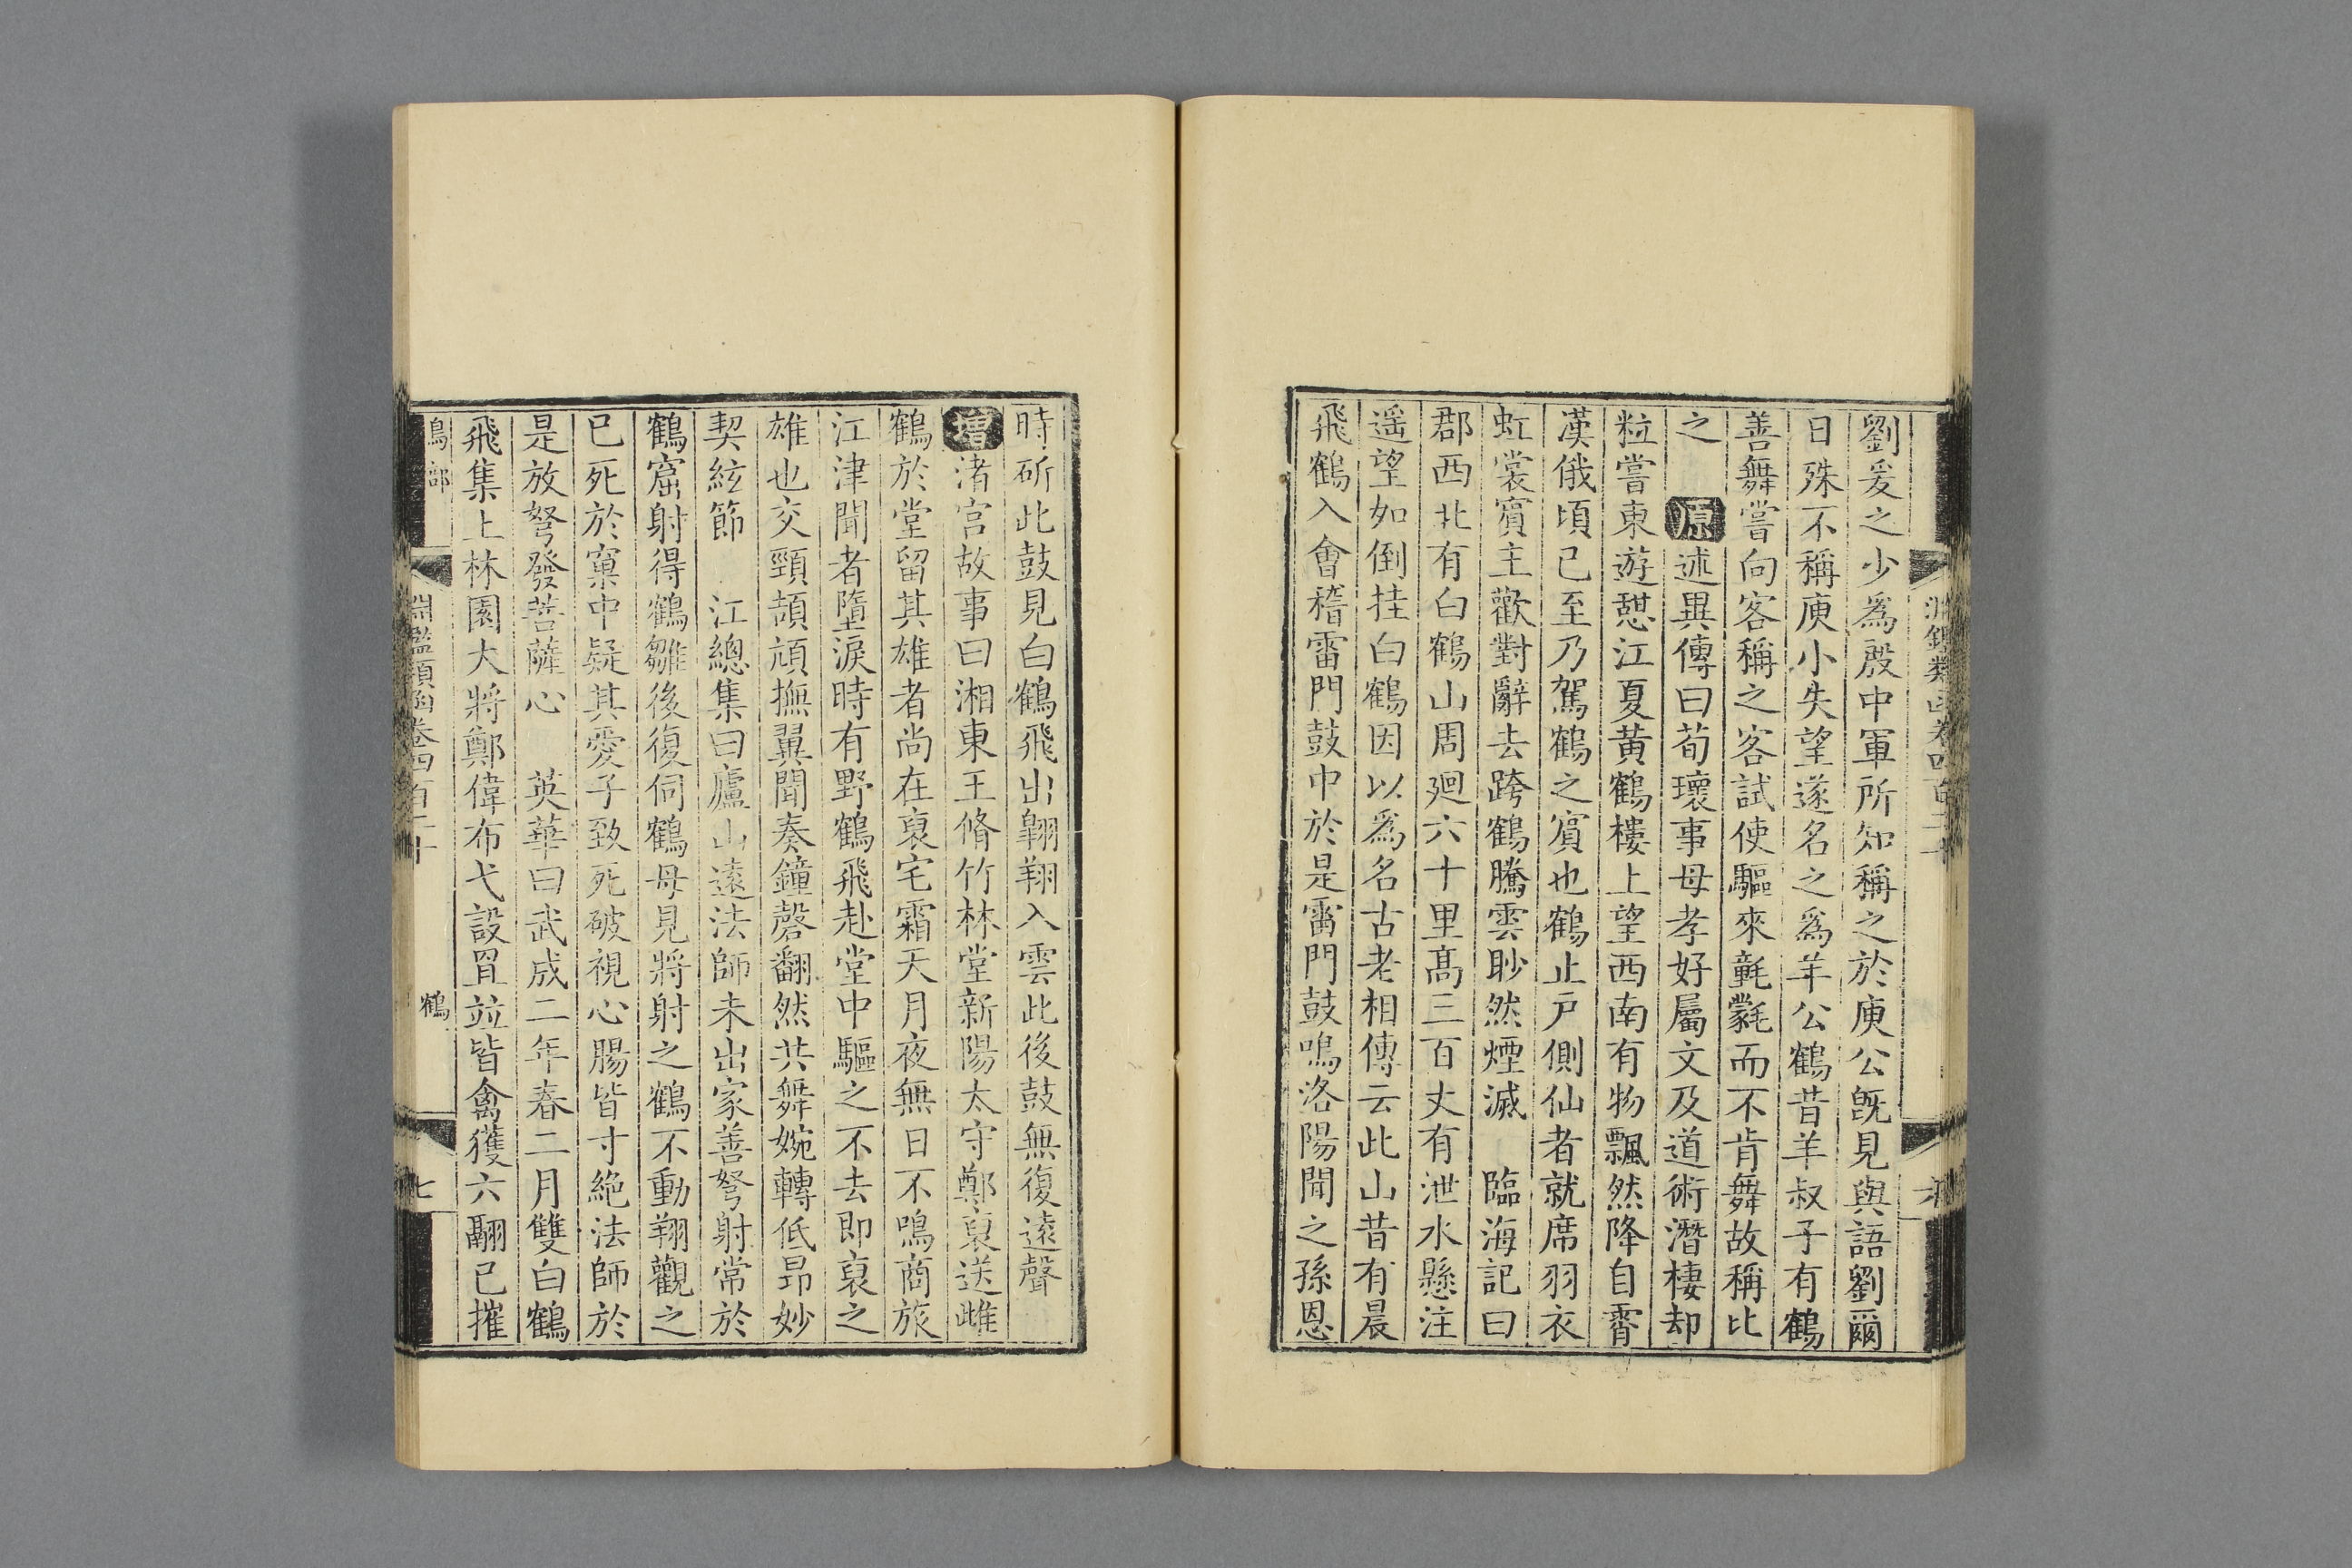 劉爰之少爲殷中軍所知稱之於庾公旣見與語劉爾
日殊不稱庾小失望遂名之爲羊公鶴昔羊叔子有鶴
善舞嘗向客稱之客試使驅來氃氋而不肯舞故稱比
之　原述異傳曰荀瓌事母孝好屬文及道術潛棲却
粒嘗東遊憩江夏黃鶴樓上望西南有物飄然降自霄
漢俄頃已至乃駕鶴之賓也鶴止戶側仙者就席羽衣
虹裳賓主歡對辭去跨鶴騰雲眇然煙滅　臨海記曰
郡西北有白鶴山周廻六十里高三百丈有泄水懸注
遥望如倒挂白鶴因以爲名古老相傳云此山昔有晨
飛鶴入會稽雷門鼓中於是雷門鼓鳴洛陽聞之孫恩
時斫此鼓見白鶴飛出翺翔入雲此後鼓無復遠聲
增渚宮故事曰湘東王脩竹林堂新陽太守鄭裒送雌
鶴於堂留其雄者尚在裒宅霜天月夜無日不鳴商旅
江津聞者墮淚時有野鶴飛赴堂中驅之不去即裒之
雄也交頸頡頏撫翼聞奏鐘磬翻然共舞婉轉低昂妙
契絃節　江總集曰廬山遠法師未出家善弩射常於
鶴窟射得鶴雛後復伺鶴母見將射之鶴不動翔觀之
已死於窠中疑其愛子致死破視心腸皆寸絶法師於
是放弩發菩薩心　英華曰武成二年春二月雙白鶴
飛集上林園大將鄭偉布弋設罝並皆禽獲六翮已摧
鳥部
淵鑑類函卷四百二十
鶴
七